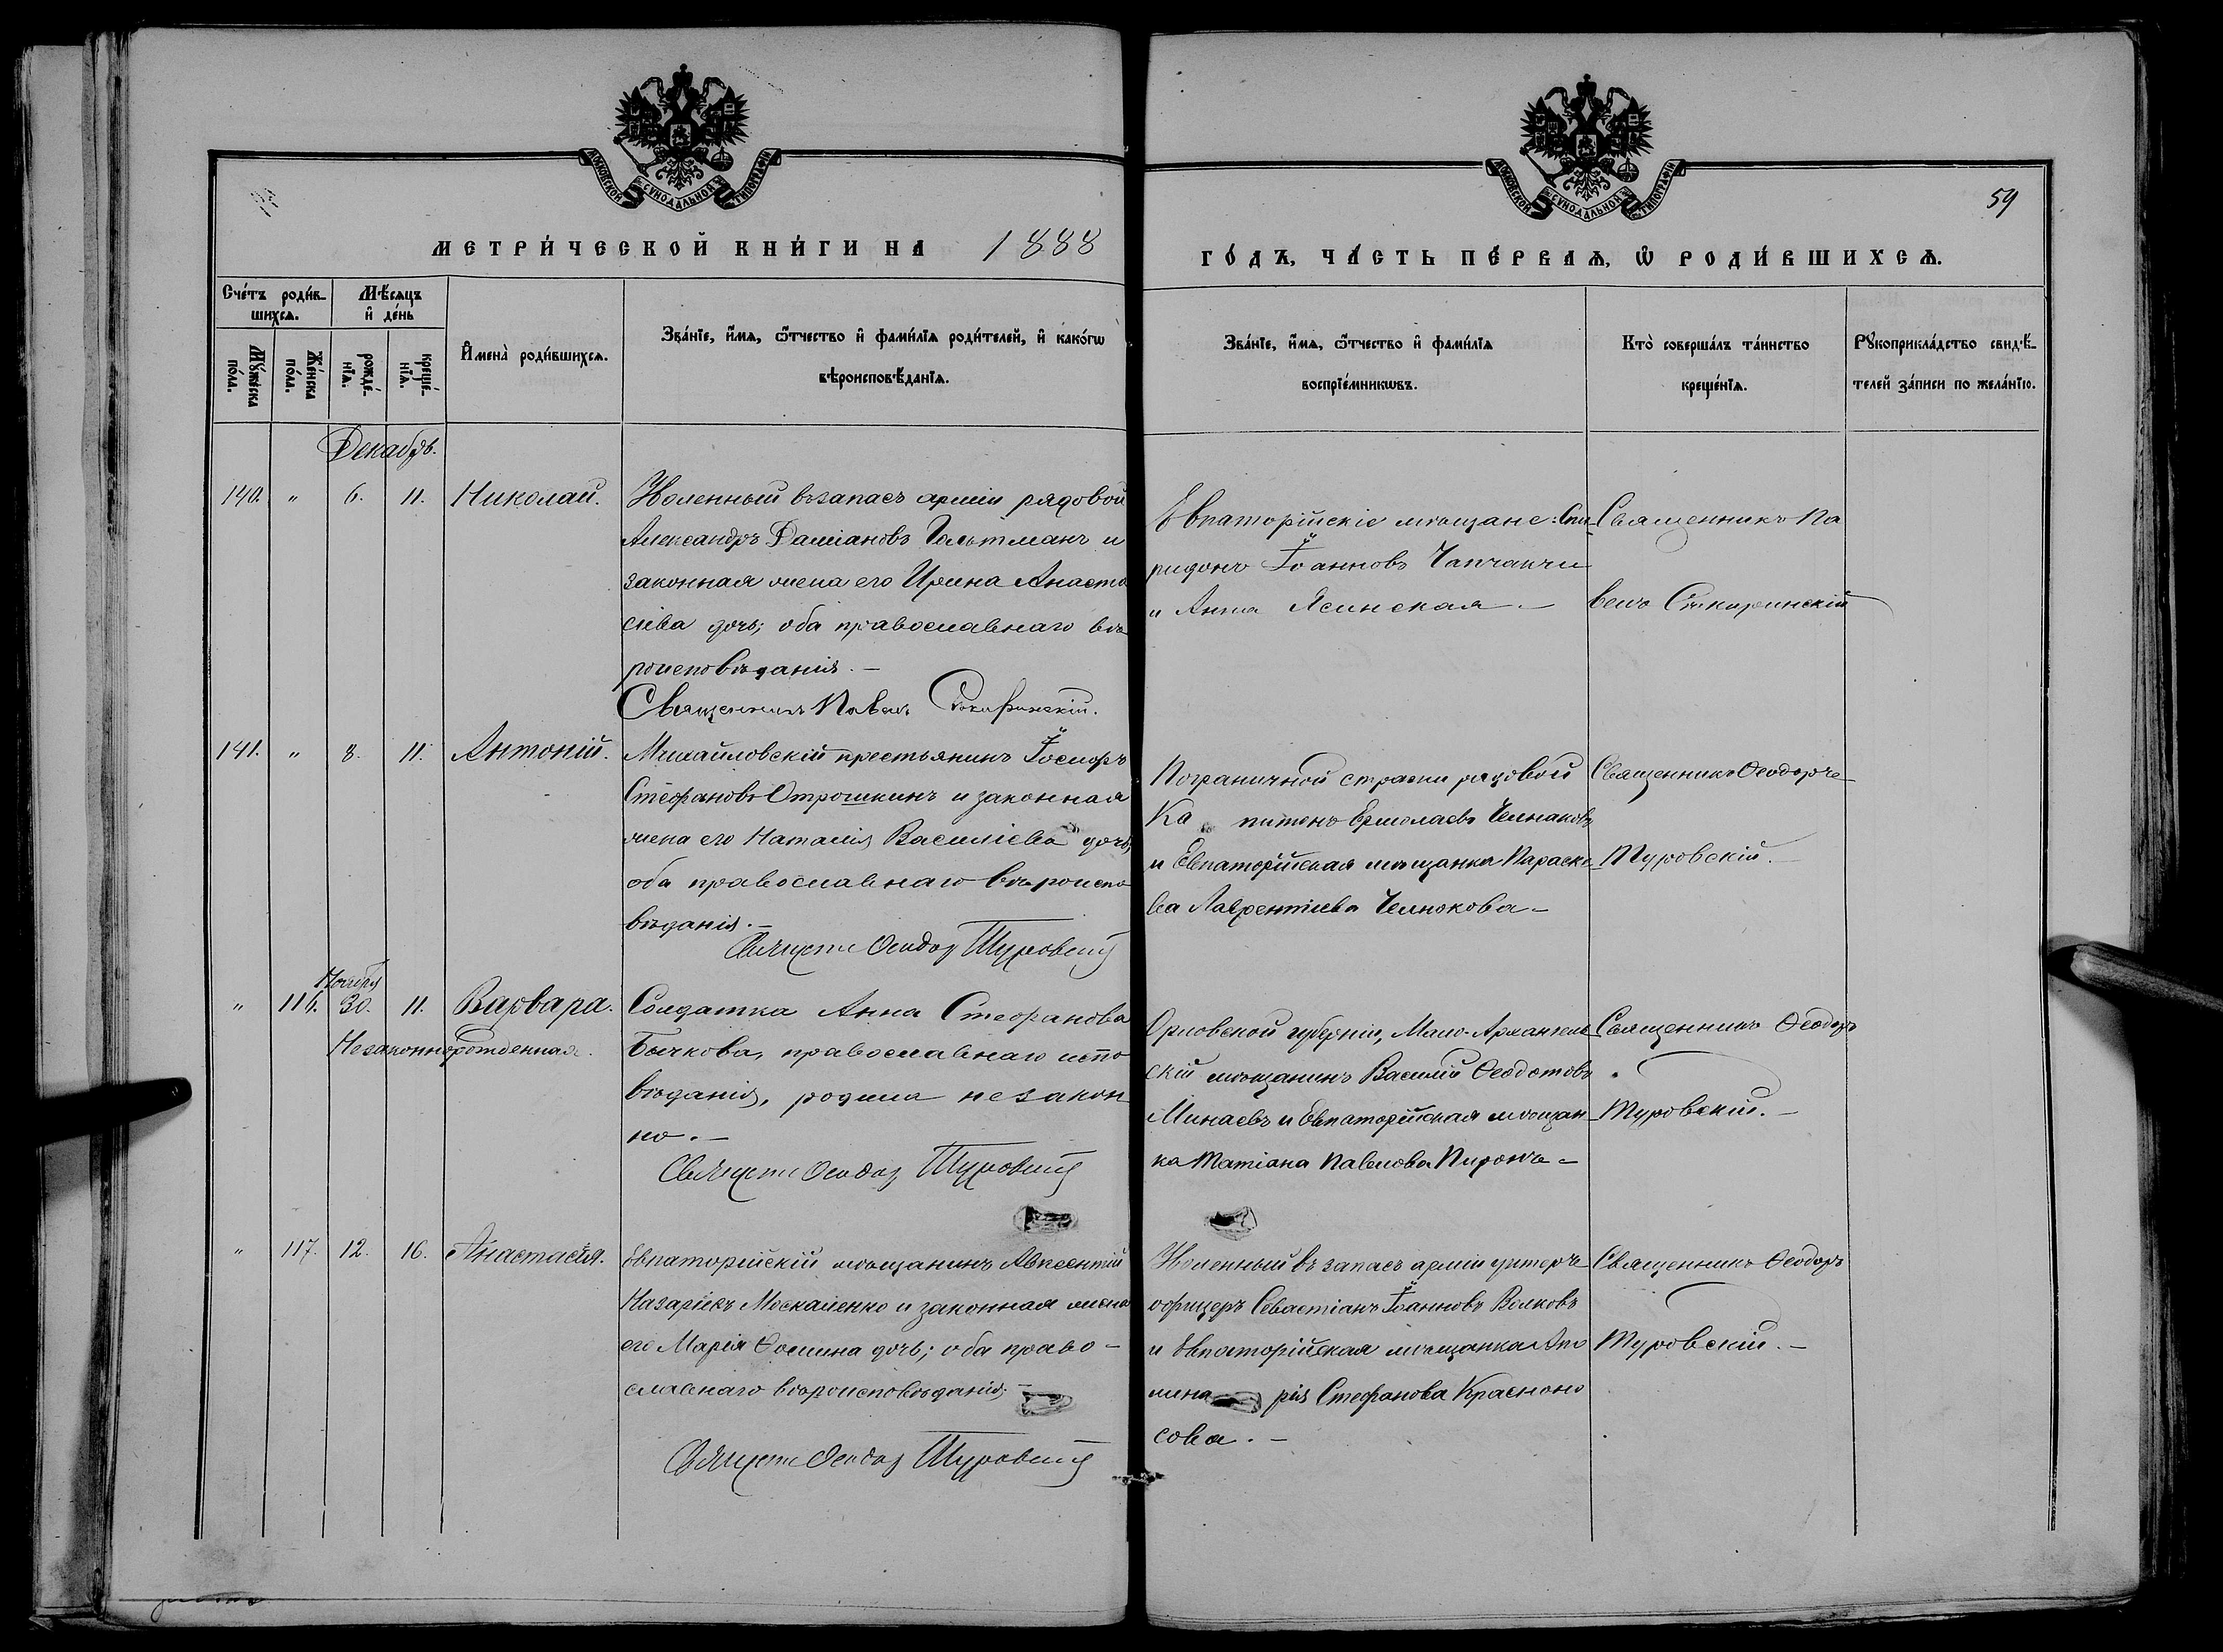 МОСКОВСКОЙ СѴНОДАЛЬНОЙ ТИПОГРАФІИ
МОСКОВСКОЙ СѴНОДАЛЬНОЙ ТИПОГРАФІИ
59
МЕТРИ́ЧЕСКОЙ КНИ́ГИ НА 1888
ГО́ДЪ, ЧА́СТЬ ПЕ́РВАѦ, Ѡ҆ РОДИ́ВШИХСѦ.
Сче́тъ роди́в-
шихсѧ.
Мѣ́сѧцъ
и҆ де́нь
Мꙋ́жеска
по́ла.
Же́нска
по́ла.
рожде́-
нїѧ.
креще́-
нїѧ.
И҆мена̀ роди́вшихсѧ.
Зва́нїе, и҆́мѧ, ѻ҆́тчество и҆ фами́лїѧ роди́телей, и҆ како́гѡ
вѣроисповѣ́данїѧ.
Зва́нїе, и҆́мѧ, ѻ҆́тчество и҆ фами́лїѧ
воспрїе́мникѡвъ.
Кто̀ соверша́лъ та́инство
креще́нїѧ.
Рꙋкоприкла́дство свидѣ́-
телей за́писи по жела́нїю.
Декабрь.
140. " 6. 11. Николай.
Уволенный въ запасъ арміи рядовой
Александръ Даміановъ Гольтманъ и
законная жена его Ирина Анаста
сіева дочь; оба православнаго вѣ-
роисповѣданія. –
Священникъ Павелъ
Евпаторійскіе мѣщане: Спи-
ридонъ Іоанновъ Чапчакчи
и Анна Ясинская. –
Священникъ Па
велъ
141. " 8. 11. Антоній.
Михайловскій крестьянинъ Іосифъ
Стефановъ Отрошкинъ и законная
жена его Наталія Василіева дочь;
оба православнаго вѣроиспо
вѣданія. –
Ѳеодоръ Туровскій
Пограничной стражи рядовой
Ка питонъ Ермолаевъ Челноковъ
и Евпаторійская мѣщанка Параске-
ва Лаврентіева Челнокова –
Священникъ Ѳеодоръ
Туровскій. –
Ноября
" 116. 30. 11. Варвара.
Незаконнорожденная.
Солдатка Анна Стефанова
Бычкова, православнаго испо
вѣданія, родила незакон
но. –
Ѳеодоръ Туровскій
Орловской губерніи, Мало-Архангель
скій мѣщанинъ Василій Ѳеодотовъ
Минаевъ и Евпаторійская мѣщан-
ка Татіана Павлова Пирожъ –
Священникъ Ѳеодоръ
Туровскій. –
" 117. 12. 16. Анастасія.
Евпаторійскій мѣщанинъ Авксентій
Назаріевъ Москаленко и законная жена
его Марія Ѳомина дочь; оба право-
славнаго вѣроисповѣданія; –
Ѳеодоръ Туровскій
Уволенный въ запасъ арміи унтеръ-
офицеръ Севастіанъ Іоанновъ Волковъ
и Евпаторійская мѣщанка Апо
лина рія Стефанова Красноно
сова. –
Священникъ Ѳеодоръ
Туровскій. –